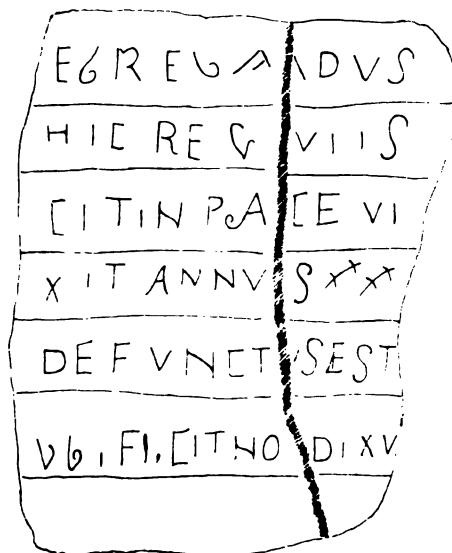 EBREGAVDVS
HIC REGVIIS
CIT IN PACE VI
XIT ANNVS XXXX
DEFVNCTVS EST
VBI FI.CIT NO DI XV